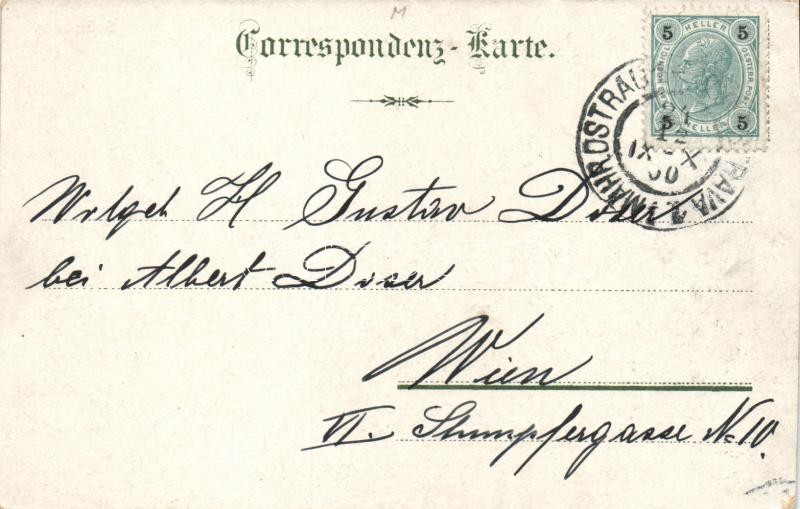 M
Correspondenz-Karte.
5 HELLER 5
KAIS. KOENIGL. OESTERR. POST.
5 HELLER 5
MÄHR. OSTRAU
OSTRAVA 1
21
12
IX X
00
Wolgeb H Gustav Doser
bei Albert Doser
Wien
VI. Stumpfergasse N= 10.